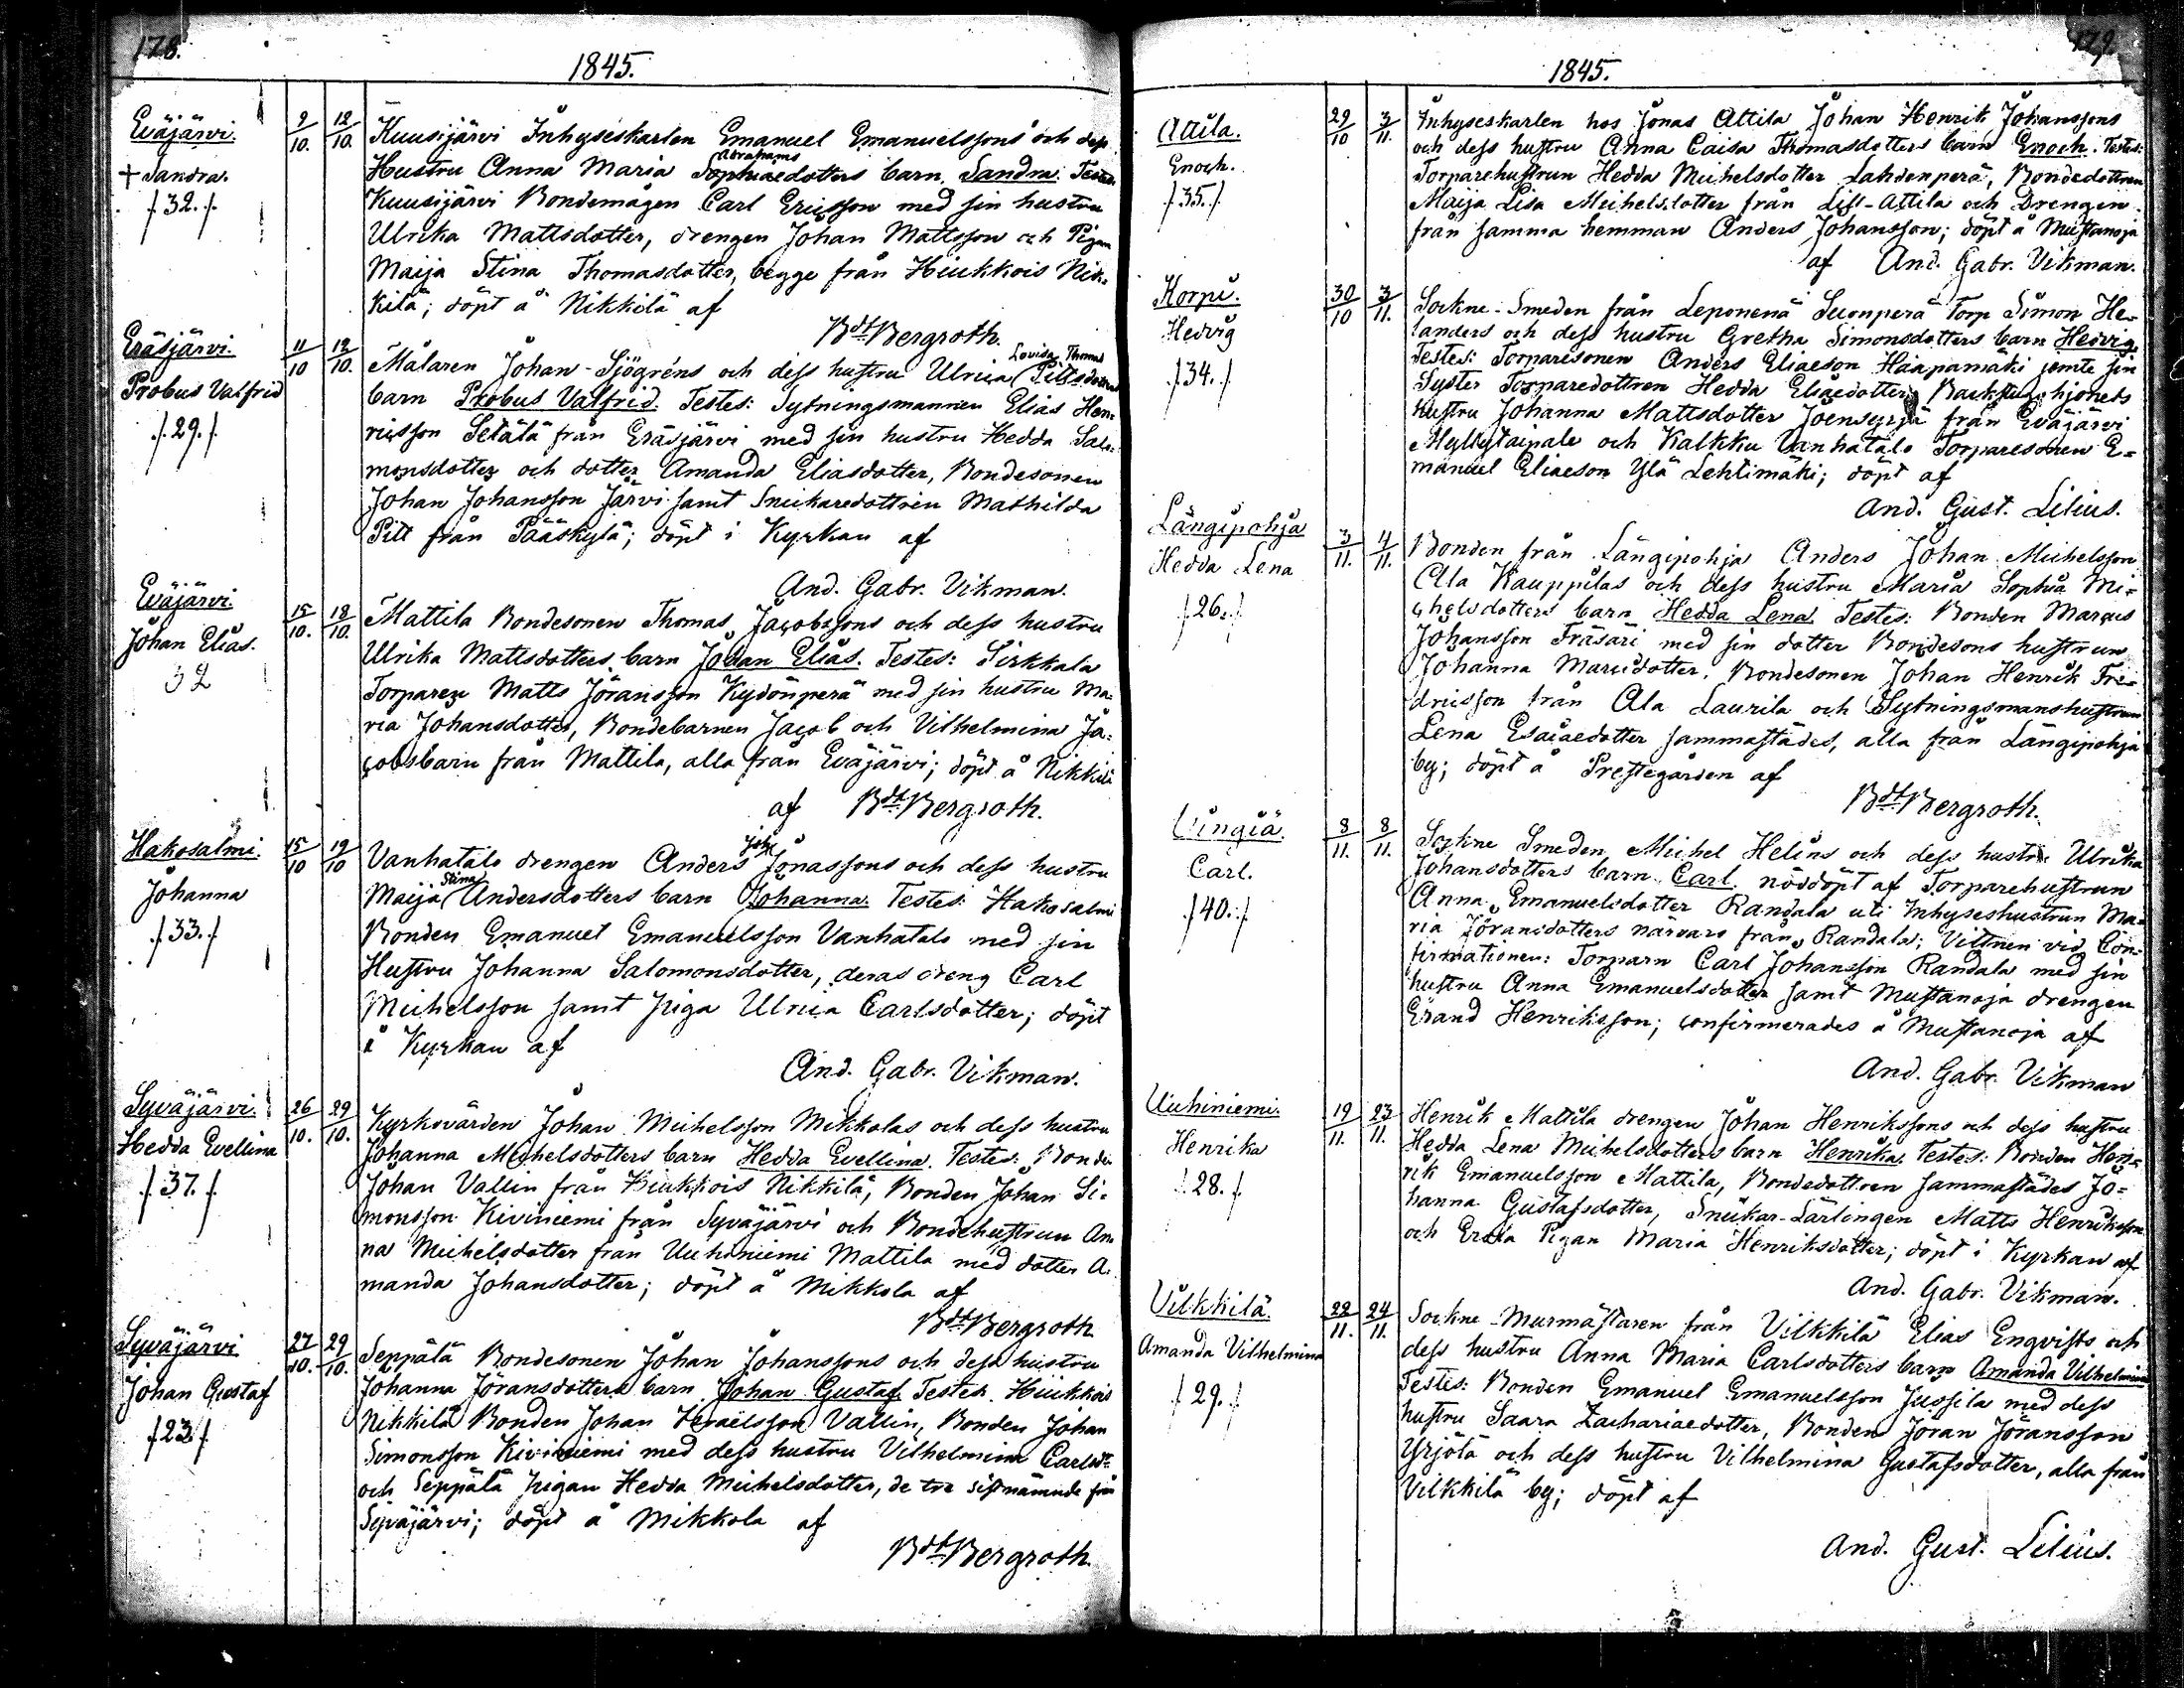 178.
1845.
Eväjärvi.
+ Sandra.
/32./
9/10. 12/10.
Kuusijärvi Inhyseskarlen Emanuel Emanuelssons och dess
Abrahams
Hustru Anna Maria Sophiaedotters barn Sandra. Testes:
Kuusijärvi Bondemågen Carl Ericsson med sin hustru
Ulrika Mattsdotter, drengen Johan Mattsson och Pigan
Maija Stina Thomasdotter, begge från Hiukkois Nik-
kilä; döpt å Nikkilä af
Bdt Bergroth.
Eräsjärvi.
Probus Valfrid
/29./
11/10 12/10.
Lovisa Thomas
Målaren Johan Sjögréns och dess hustru Ulrica Pittsdotters
barn Probus Valfrid. Testes: Sytningsmannen Elias Hen-
ricsson Setälä från Eräsjärvi med sin hustru Hedda Salo-
monsdotter och dotter Amanda Eliasdotter, Bondesonen
Johan Johansson Järvi samt Snickaredottren Mathilda
Pitt från Pääskylä; döpt i Kyrkan af
And. Gabr. Vikman.
Eväjärvi.
Johan Elias.
32
15/10. 18/10.
Mattila Bondesonen Thomas Jacobssons och dess hustru
Ulrika Mattsdotters barn Johan Elias. Testes: Sirkkala
Torparen Matts Jöransson Kydönperä med sin hustru Ma-
ria Johansdotter, Bondebarnen Jacob och Vilhelmina Ja-
cobsbarn från Mattila, alla från Eväjärvi; döpt å Nikkilä
af Bdt Bergroth.
Hakosalmi.
Johanna
/33./
15/10 19/10
Joh:
Vanhatalo drengen Anders Jonassons och dess hustru
Stina
Maija Andersdotters barn Johanna. Testes: Hakosalmi
Bonden Emanuel Emanuelsson Vanhatalo med sin
Hustru Johanna Salomonsdotter, deras dreng Carl
Michelsson samt piga Ulrica Carlsdotter; döpt
i Kyrkan af
And. Gabr. Vikman.
Syväjärvi.
Hedda Evellina
/37./
26/10. 29/10.
Kyrkovärden Johan Michelsson Mikkolas och dess hustru
Johanna Michelsdotters barn Hedda Evellina. Testes: Bonden
Johan Vallin från Hiukkois Nikkilä, Bonden Johan Si-
monsson Kiviniemi från Syväjärvi och Bondehustrun An-
na Michelsdotter från Uuhiniemi Mattila med dotter A-
manda Johansdotter; döpt å Mikkola af
Bdt Bergroth.
Syväjärvi
Johan Gustaf
/23/
27/10. 29/10.
Seppälä Bondesonen Johan Johanssons och dess hustru
Johanna Jöransdotters barn Johan Gustaf. Testes: Hiukkois
Nikkilä Bonden Johan Israelsson Vallin, Bonden Johan
Simonsson Kiviniemi med dess hustru Vilhelmina Carlsdr
och Seppälä pigan Hedda Michelsdotter, de tre sistnämnde från
Syväjärvi; döpt å Mikkola af
Bdt Bergroth.
179.
1845.
Attila.
Enoch.
/35./
29/10 3/11.
Inhyseskarlen hos Jonas Attila Johan Henrik Johanssons
och dess hustru Anna Caisa Thomasdotters barn Enoch. Testes:
Torparehustrun Hedda Michelsdotter Lahdenperä, Bondedottren
Maija Lisa Michelsdotter från Lill-Attila och Drengen
från samma hemman Anders Johansson; döpt å Mustanoja
af And. Gabr. Vikman.
Korpi.
Hedvig
/34./
30/10 3/11.
Sockne-Smeden från Leponenä Suonperä Torp Simon He-
landers och dess hustru Gretha Simonsdotters barn Hedvig.
Testes: Torparesonen Anders Eliaeson Haapamäki jemte sin
Syster Torparedottren Hedda Eliaedotter, Backstugohjonets
hustru Johanna Mattsdotter Joensyrjä från Eväjärvi
Myllytaipale och Kalkku Vanhatalo Torparesonen E-
manuel Eliaeson Ylä Lehtimäki; döpt af
And. Gust. Lilius.
Längipohja
Hedda Lena
/26./
3/11. 4/11.
Bonden från Längipohja Anders Johan Michelsson
Ala Kauppilas och dess hustru Maria Sophia Mi-
chelsdotters barn Hedda Lena. Testes: Bonden Marcus
Johansson Träsäri med sin dotter Bondesons hustrun
Johanna Marcidotter. Bondesonen Johan Henrik Fre-
dricsson från Ala Laurila och Sytningsmanshustrun
Lena Esaiaedotter sammastädes, alla från Längipohja
by; döpt å Prestegården af
Bdt Bergroth.
Vingiä.
Carl.
/40./
8/11. 8/11.
Sockne Smeden Michel Heléns och dess hustru Ulrika
Johansdotters barn Carl, nöddöpt af Torparehustrun
Anna Emanuelsdotter Randala uti Inhyseshustrun Ma-
ria Jöransdotters närvaro från Randala; Vittnen vid Con-
firmationen: Torparn Carl Johansson Randala med sin
hustru Anna Emanuelsdotter samt Mustanoja drengen
Erand Henriksson; confirmerades å Mustanoja af
And. Gabr. Vikman
Uuhiniemi.
Henrika
/28./
19/11. 23/11.
Henrik Mattila drengen Johan Henrikssons och dess hustru
Hedda Lena Michelsdotters barn Henrika. Testes: Bonden Hen-
rik Emanuelsson Mattila, Bondedottren sammastädes Jo-
hanna Gustafsdotter, Snickar-Lärlingen Matts Henriksson
och Erkla Pigan Maria Henriksdotter; döpt i Kyrkan af
And. Gabr. Vikman.
Vilkkilä.
Amanda Vilhelmina
/29./
22/11. 24/11.
Sockne-Murmästaren från Vilkkilä Elias Engvists och
dess hustru Anna Maria Carlsdotters barn Amanda Vilhelmina
Testes: Bonden Emanuel Emanuelsson Jussila med dess
hustru Saara Zachariaedotter, Bonden Jöran Jöransson
Yrjölä och dess hustru Vilhelmina Gustafsdotter, alla från
Vilkkilä by; döpt af
And. Gust. Lilius.